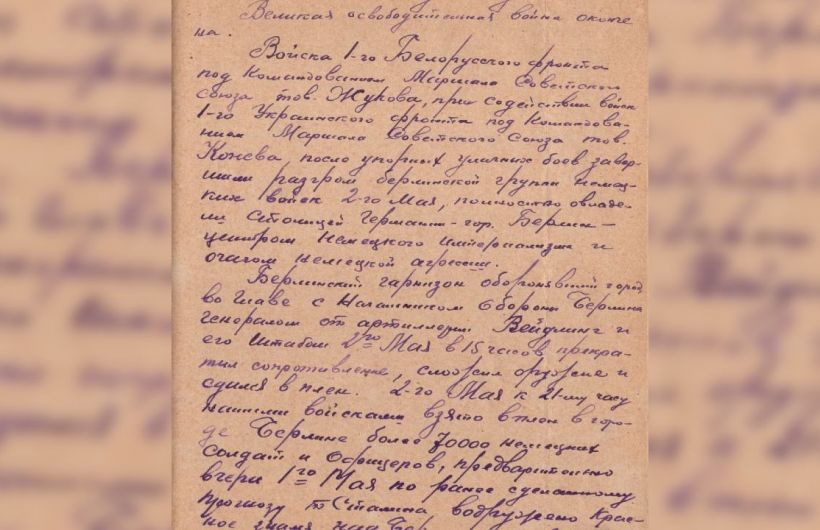 Великая освободительная война оконче
на.
Войска 1-го Белорусского фронта
под Командованием Маршала Советского
Союза тов. Жукова, при содействии войск
1-го Украинского фронта под Командова-
нием Маршала Советского Союза тов.
Конева, после упорных уличных боев завер-
шили разгром берлинской группы немец-
ких войск 2-го Мая, полностью овладе-
ли Столицей Германии - гор. Берлин -
центром немецкого империализма и
очагом немецкой агрессии.
Берлинский гарнизон оборонявший город
во главе с Начальником Обороны Берлина
генералом от артиллерии Вейдлинг и
его Штабом 2го Мая в 15 часов прекра-
тил сопротивление, сложил оружие и
сдался в плен. 2-го Мая к 21-му часу
нашими войсками взято в плен в горо-
де Берлине более 70000 немецких
солдат и офицеров, предварительно
вчера 1го Мая по ранее сделанному
прогнозу т Сталина, водружено Крас-
ное знамя над Бер